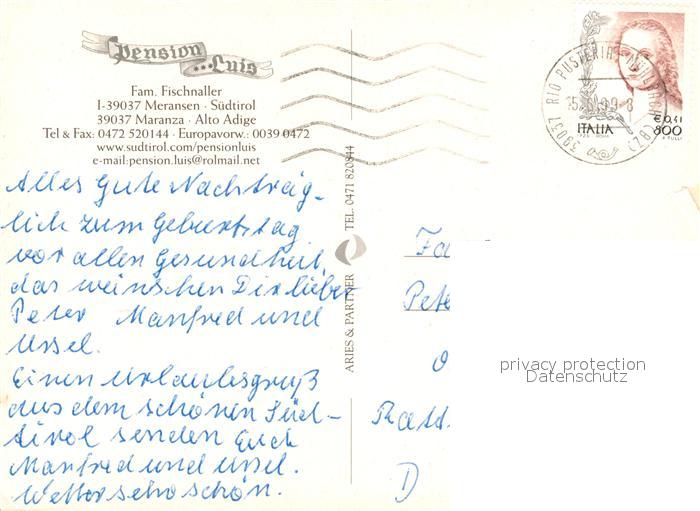 Pension
...Luis
Fam. Fischnaller
I-39037 Meransen · Südtirol
39037 Maranza · Alto Adige
Tel & Fax: 0472 520144 · Europavorw.: 0039 0472
www.sudtirol.com/pensionluis
e-mail:pension.luis@rolmail.net
Alles Gute Nachträg-
lich zum Geburtstag
vor allen Gesundheit,
das wünschen Dir lieber
Peter Manfred und
Ursel.
Einen Urlaubsgruß
aus dem schönen Süd-
tirol senden Euch
Manfred und Ursel.
Wetter sehr schön.
ARIES & PARTNER TEL. 0471 820844
39037 RIO PUSTERIA (BZ)
ITALIA
€ 0,41
800
Fa
Pete
D
privacy protection
Datenschutz